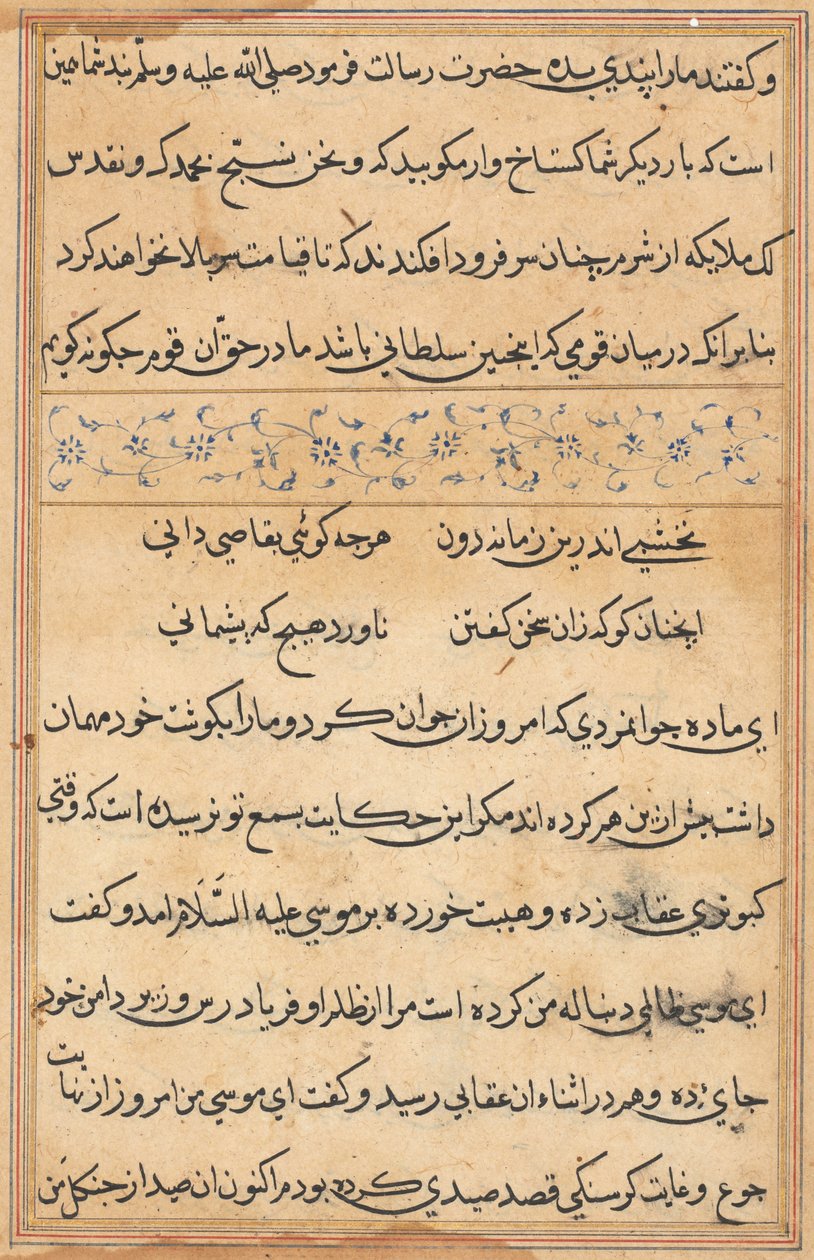 و کفتند مارا پندي بده حضرت رسالت فرمود صلي الله عليه وسلّم پند شما همين
است که بار ديکر شما کستاخ وار مکوييد که و نحن نسبّح بحمدک و نقدس
لک ملايکه از شرم چنان سر فرود افکندند که تا قيامت سر بالا نخواهند کرد
بنا بر آنکه در ميان قومي که اينچنين سلطاني باشد ما در حقّ ان قوم چکونه کويم
نخشبي اندرين زمانه دون هرچه کوئي بقاصي داني
اينچنان کو که زان سخن کفتن ناورد هيچ که پشيماني
اي ماده جوانمردي که امروز ان جوان کرد و مارا بکوشت خود مهمان
داشت پيش ازين هم کرده اند مکر اين حکايت بسمع تو نرسيده است که وقتي
کبوتري عقاب زده و هيبت خورده بر موسي عليه السَّلَام امد و کفت
اي موسي ظالمي دنباله من کرده است مرا از ظلم او فرياد رس و زير دامن خود
جاي ده و هم در اثناء ان عقابي رسيد و کفت اي موسي من امروز از نهايت
جوع و غايت کرسنکي قصد صيدي کرده بودم اکنون ان صيد از چنکل من